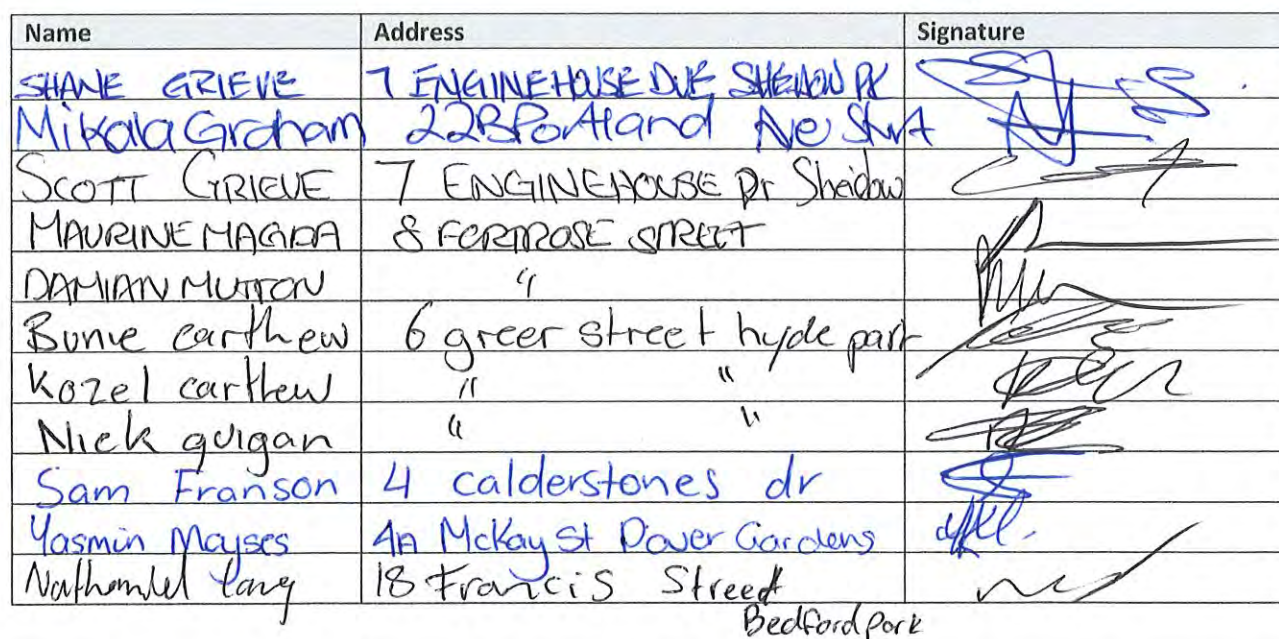 Name Address Signature
SHANE GRIEVE 7 ENGINEHOUSE DVE SHEIDOW PK
Mikala Graham 22B Portland Ave
SCOTT GRIEVE 7 ENGINEHOUSE Dr Sheidow
MAURINE MAGIDA 8 FORTROSE STREET
DAMIAN MUTTON "
carthew 6 greer street hyde park
Kozel carthew " "
Nick guigan " "
Sam Franson 4 calderstones dr
Yasmin Mayses 4A McKay St Dover Gardens
18 Francis Street
Bedford Park